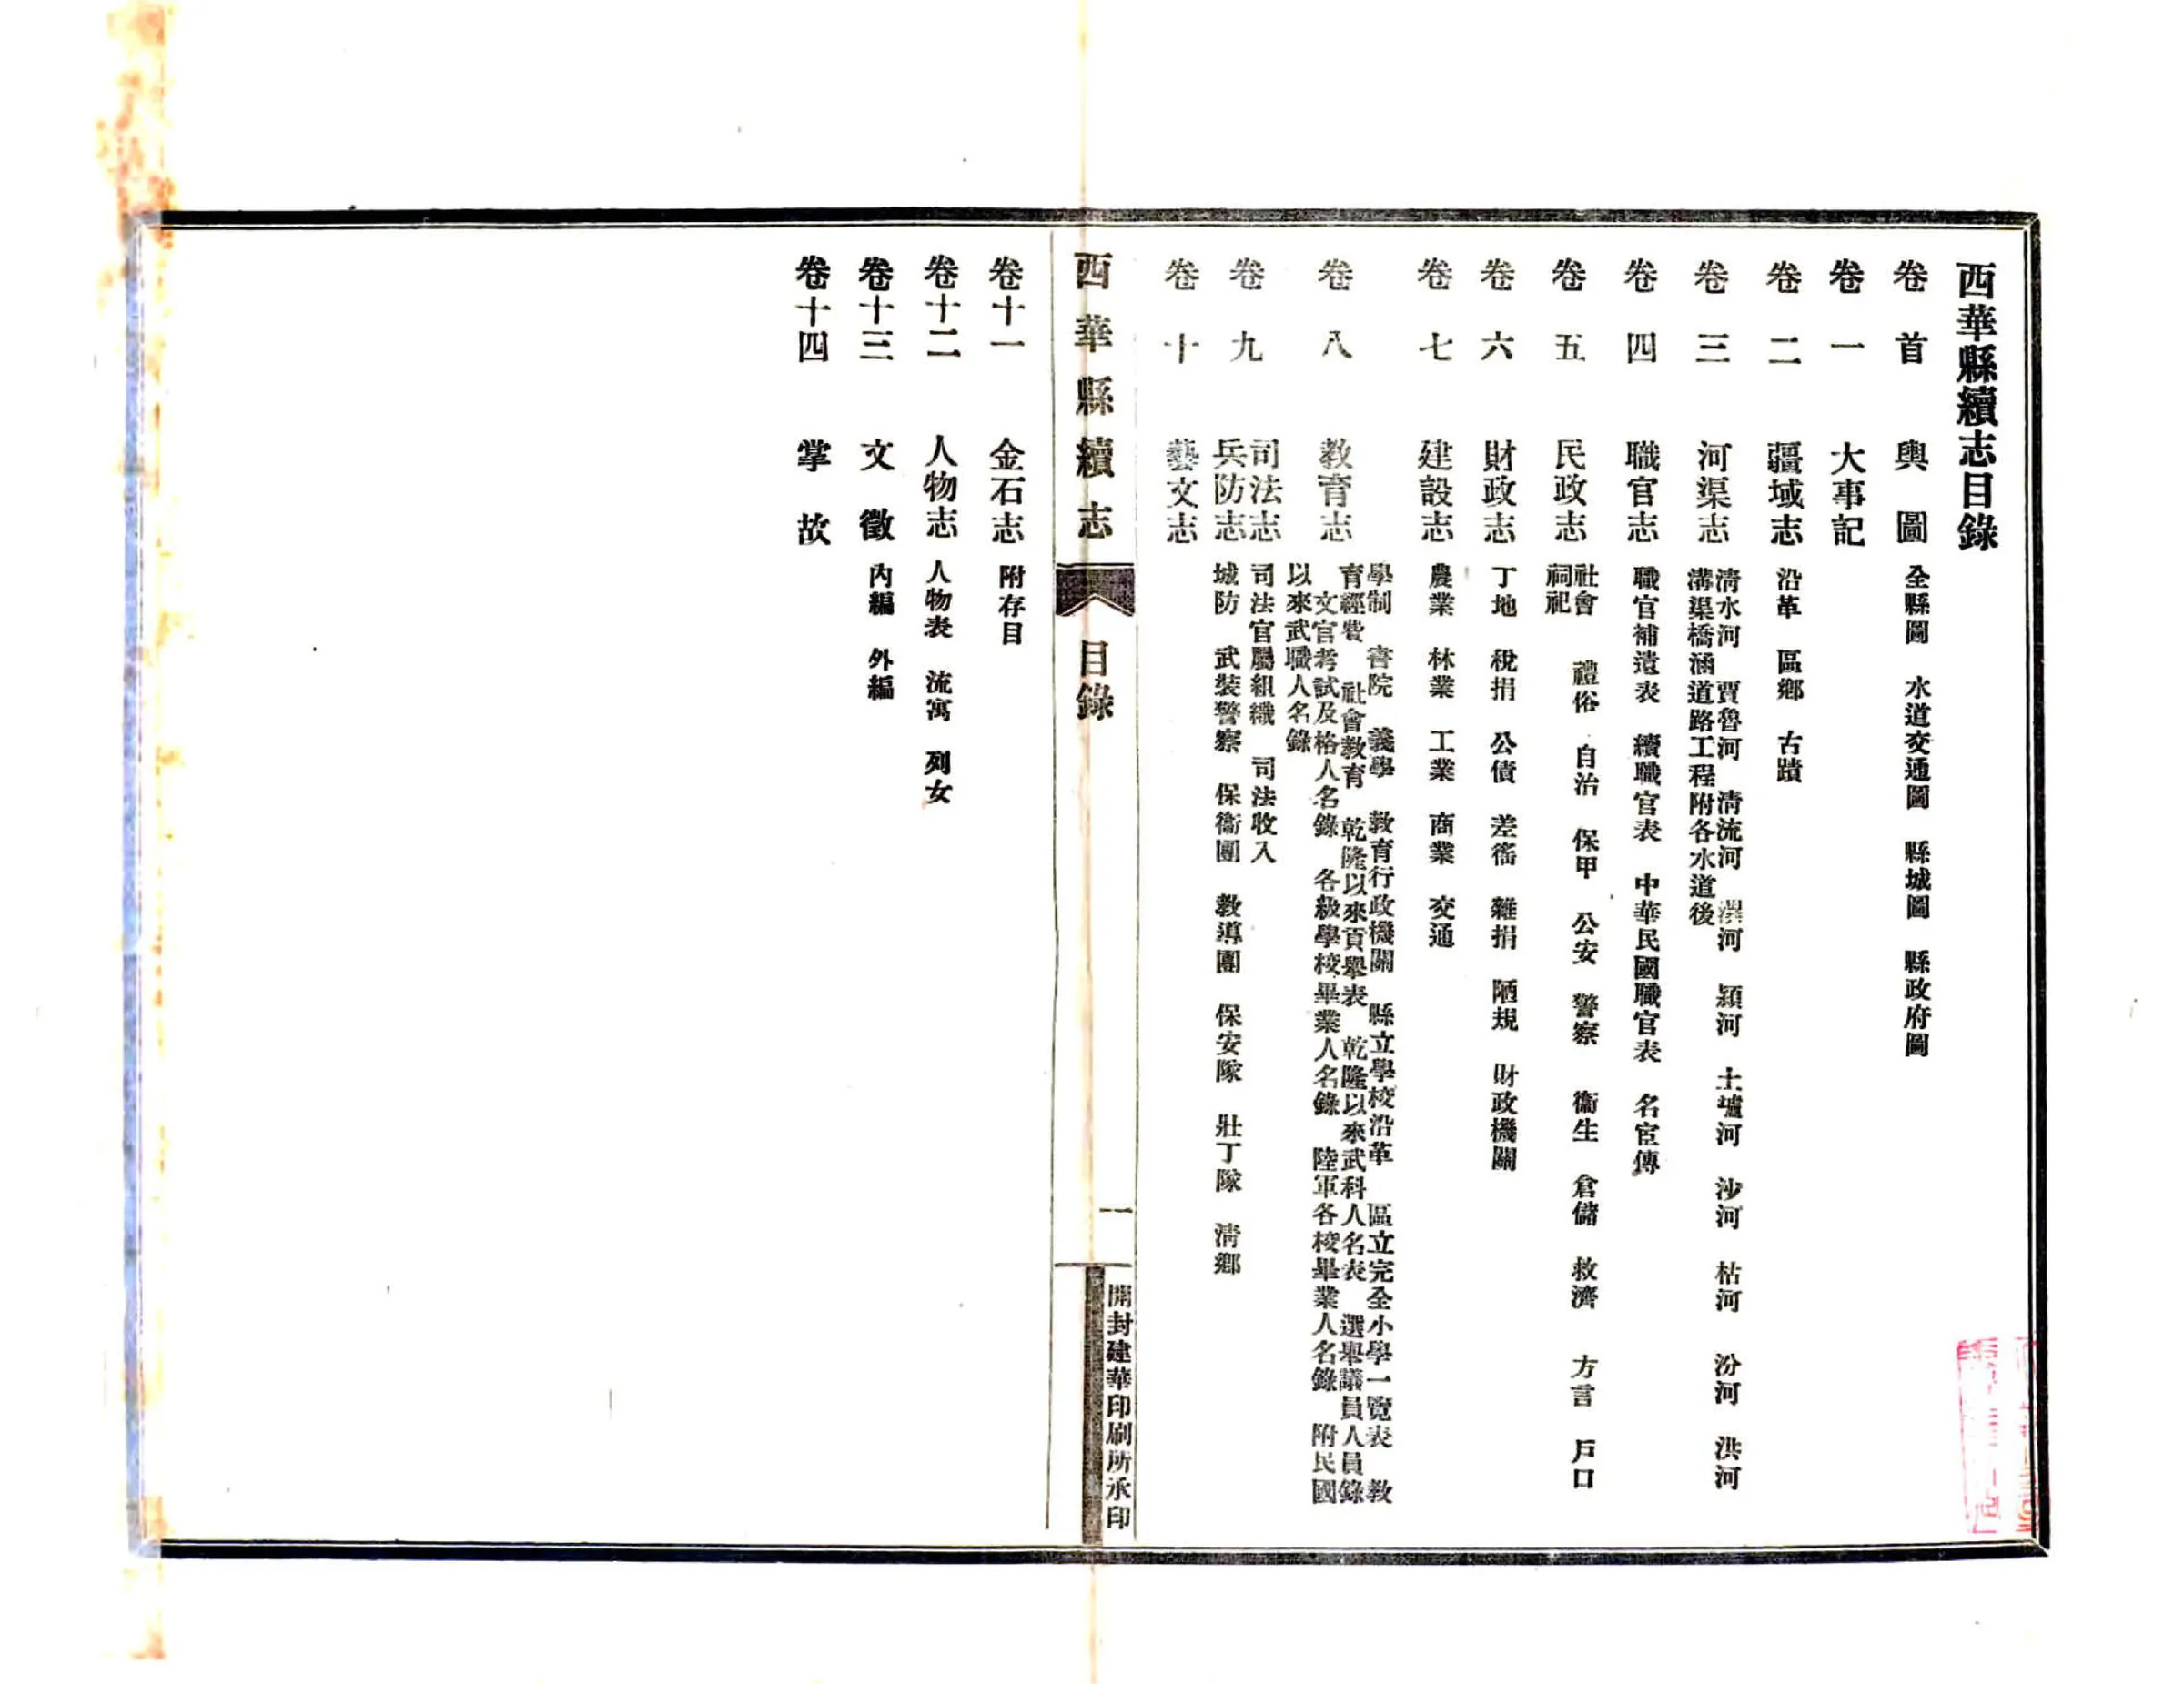 西華縣續志目錄
卷首 輿圖 全縣圖 水道交通圖 縣城圖 縣政府圖
卷一 大事記
卷二 疆域志 沿革 區鄉 古蹟
卷三 河渠志 清水河 賈魯河 清流河 潩河 潁河 土壚河 沙河 枯河 汾河 洪河
溝渠橋涵道路工程附各水道後
卷四 職官志 職官補遺表 續職官表 中華民國職官表 名宦傳
卷五 民政志 社會 禮俗 自治 保甲 公安 警察 衞生 倉儲 救濟 方言 戶口
祠祀
卷六 財政志 丁地 稅捐 公債 差徭 雜捐 陋規 財政機關
卷七 建設志 農業 林業 工業 商業 交通
卷八 教育志 學制 書院 義學 教育行政機關 縣立學校沿革 區立完全小學一覽表 教
育經費 社會教育 乾隆以來貢舉表 乾隆以來武科人名表 選舉議員人員錄
文官考試及格人名錄 各級學校畢業人名錄 陸軍各校畢業人名錄 附民國
以來武職人名錄
卷九 司法志 司法官屬組織 司法收入
兵防志 城防 武裝警察 保衞團 教導團 保安隊 壯丁隊 清鄉
卷十 藝文志
西華縣續志 目錄 一 開封建華印刷所承印
卷十一 金石志 附存目
卷十二 人物志 人物表 流寓 列女
卷十三 文徵 內編 外編
卷十四 掌故